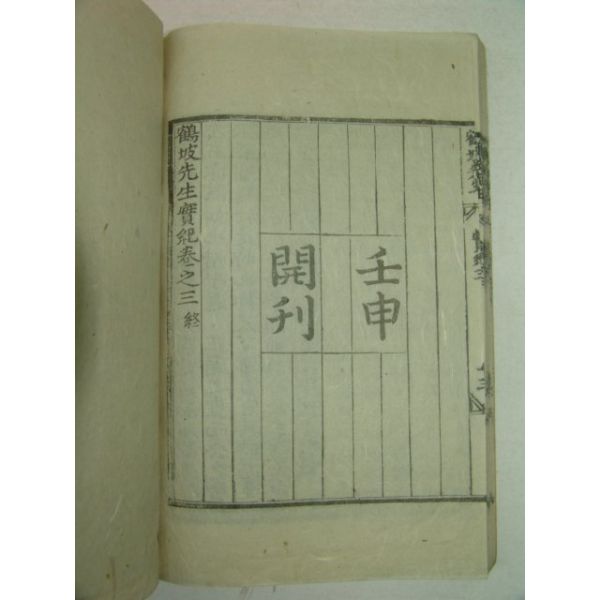 壬申
開刊
鶴坡先生實紀卷之三 終